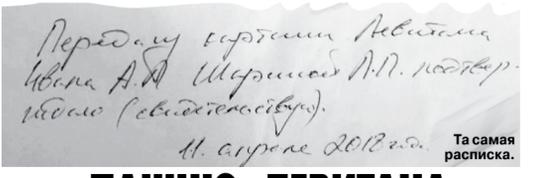 Передачу картины Левитана
Ивана А.А Шориной Л.П. подтвер-
ждаю (свидетельствую).
11. апреля 2018 год.
Та самая
расписка.